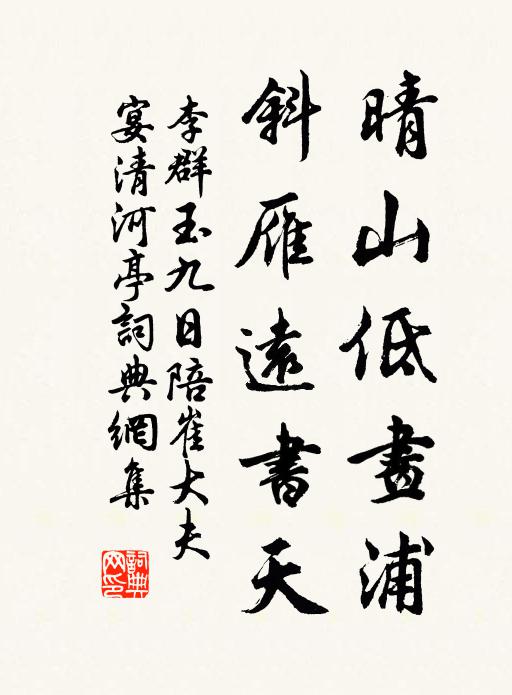 晴山低畫浦
斜雁遠書天
李群玉九日陪崔大夫
宴清河亭詞典網集
詞典網印